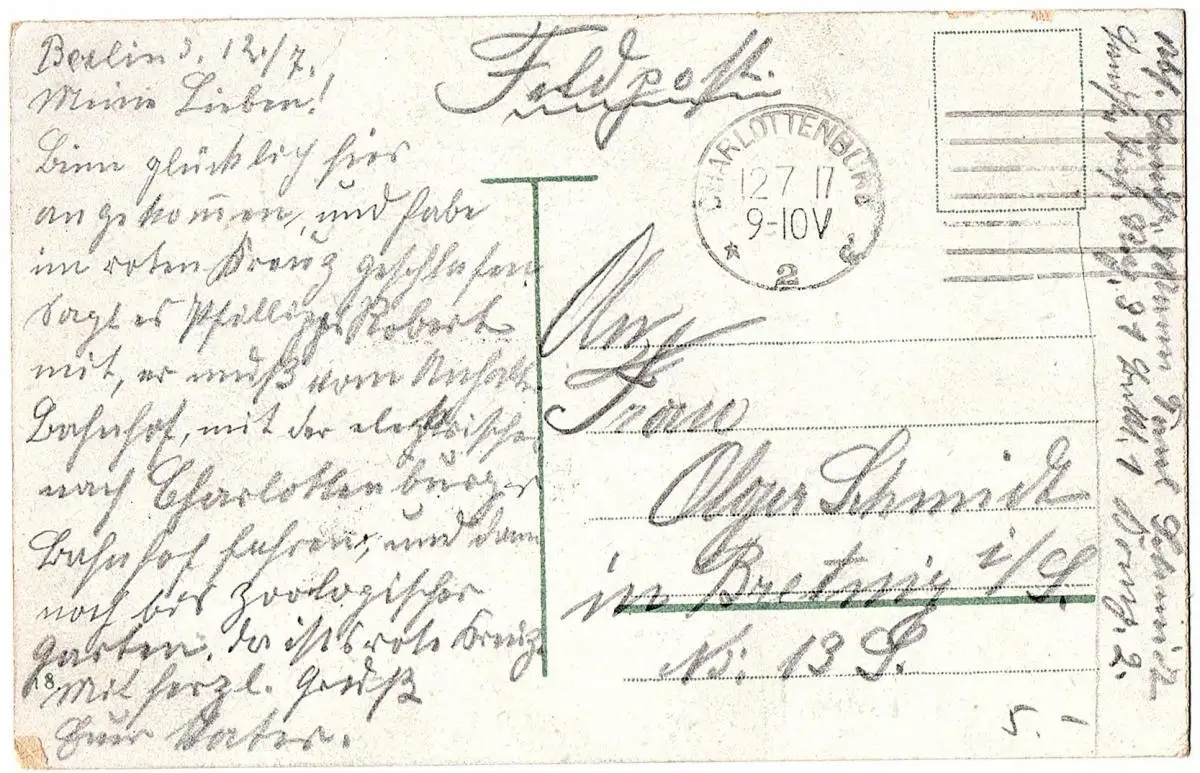 Berlin d. 12./7.
Meine Lieben!
Binn glücklich hier
angekommen, und habe
im roten Kreuz geschlafen
Sagt es Robert
mit, er muß vom Anhalt.
Bahnhof, mit der elektrische
nach Charlottenburger
Bahnhof fahren, und dann
noch bis Zoologischer
Garten. da ists rote Kreuz.
mit herzl. Gruß
Euer Vater.
18
Feldpost.
CHARLOTTENBURG
12 7 17
9-10V
* 2
An
Frau
Olga Schmidt
in Bretnig i/S.
No: 13 S.
5. -